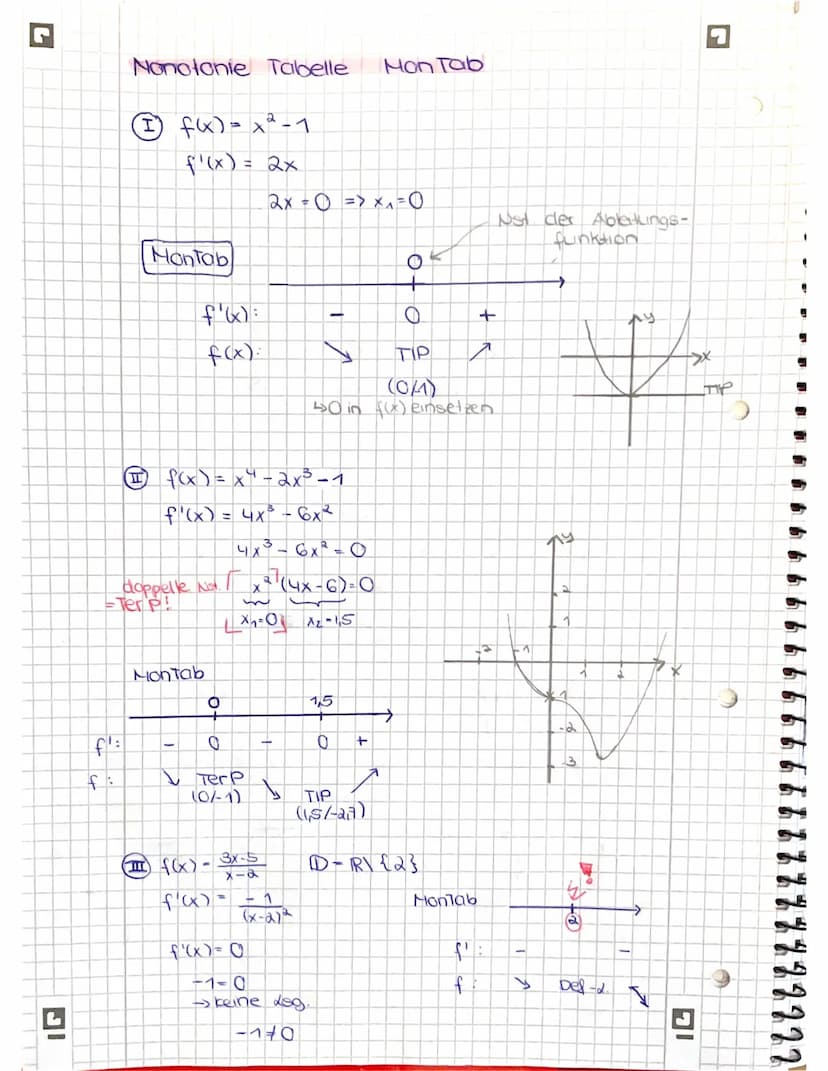 Monotonie Tabelle MonTab
I f(x) = x² - 1
f'(x) = 2x
2x = 0 => x₁ = 0
Nst der Ableitungs-
funktion
MonTab
0
f'(x): - 0 +
f(x): ↘ TIP ↗
(0/-1)
↳ 0 in f(x) einsetzen
y
x
TIP
II f(x) = x⁴ - 2x³ - 1
f'(x) = 4x³ - 6x²
4x³ - 6x² = 0
doppelle Nst. x² (4x-6) = 0
= TerP!
x₁=0 x₂=1,5
y
2
1
-2 -1 1 2 x
-1
-2
-3
MonTab
0 1,5
f': - 0 - 0 +
f: ↘ TerP ↘ TIP ↗
(0/-1) (1,5/-2,7)
III f(x) = 3x-5 / x-2 D = R\{2}
f'(x) = -1 / (x-2)²
f'(x) = 0
-1 = 0
→ keine Lsg.
-1 ≠ 0
MonTab
!
2
f': - -
f: ↘ Def-L. ↘